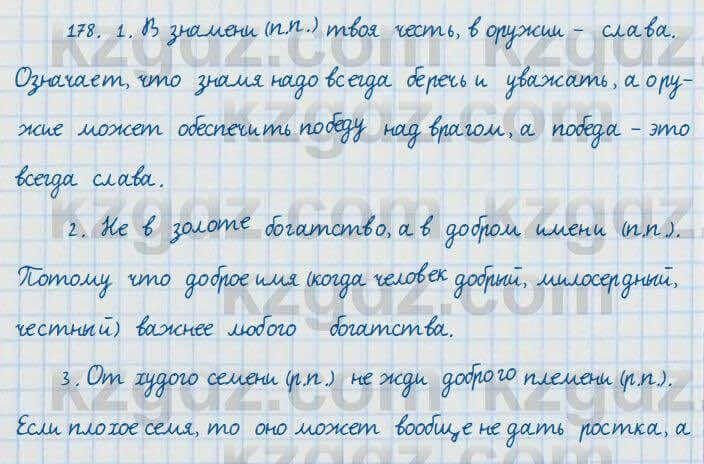 178. 1. В знамени (п.п.) твоя честь, в оружии - слава.
Означает, что знамя надо всегда беречь и уважать, а ору-
жие может обеспечить победу над врагом, а победа - это
всегда слава.
2. Не в золоте богатство, а в добром имени (п.п.).
Потому что доброе имя (когда человек добрый, милосердный,
честный) важнее любого богатства.
3. От худого семени (р.п.) не жди доброго племени (р.п.).
Если плохое семя, то оно может вообще не дать ростка, а
kzgdz.com